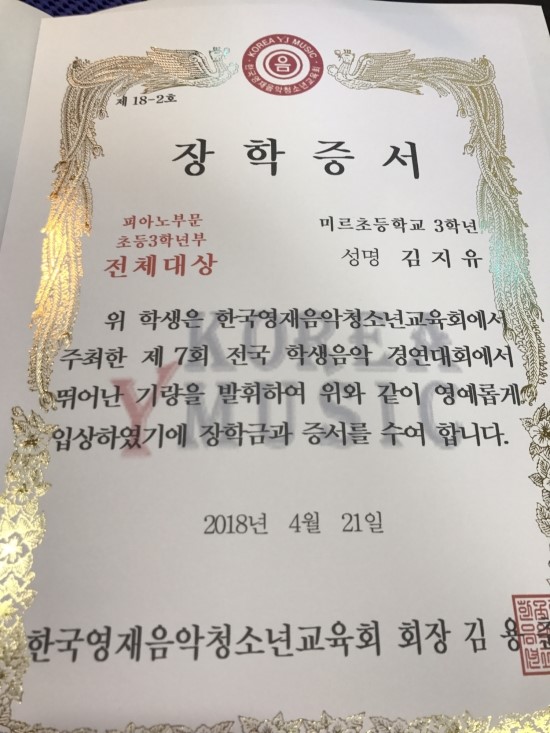 KOREA YJ MUSIC
음
한국영재음악청소년교육회
제 18-2호
장 학 증 서
피아노부문
초등3학년부
전체대상
미르초등학교 3학년
성명 김 지 유
위 학생은 한국영재음악청소년교육회에서
주최한 제 7회 전국 학생음악 경연대회에서
뛰어난 기량을 발휘하여 위와 같이 영예롭게
입상하였기에 장학금과 증서를 수여 합니다.
KOREA
Y MUSIC
2018년 4월 21일
한국영재음악청소년교육회 회장 김 용